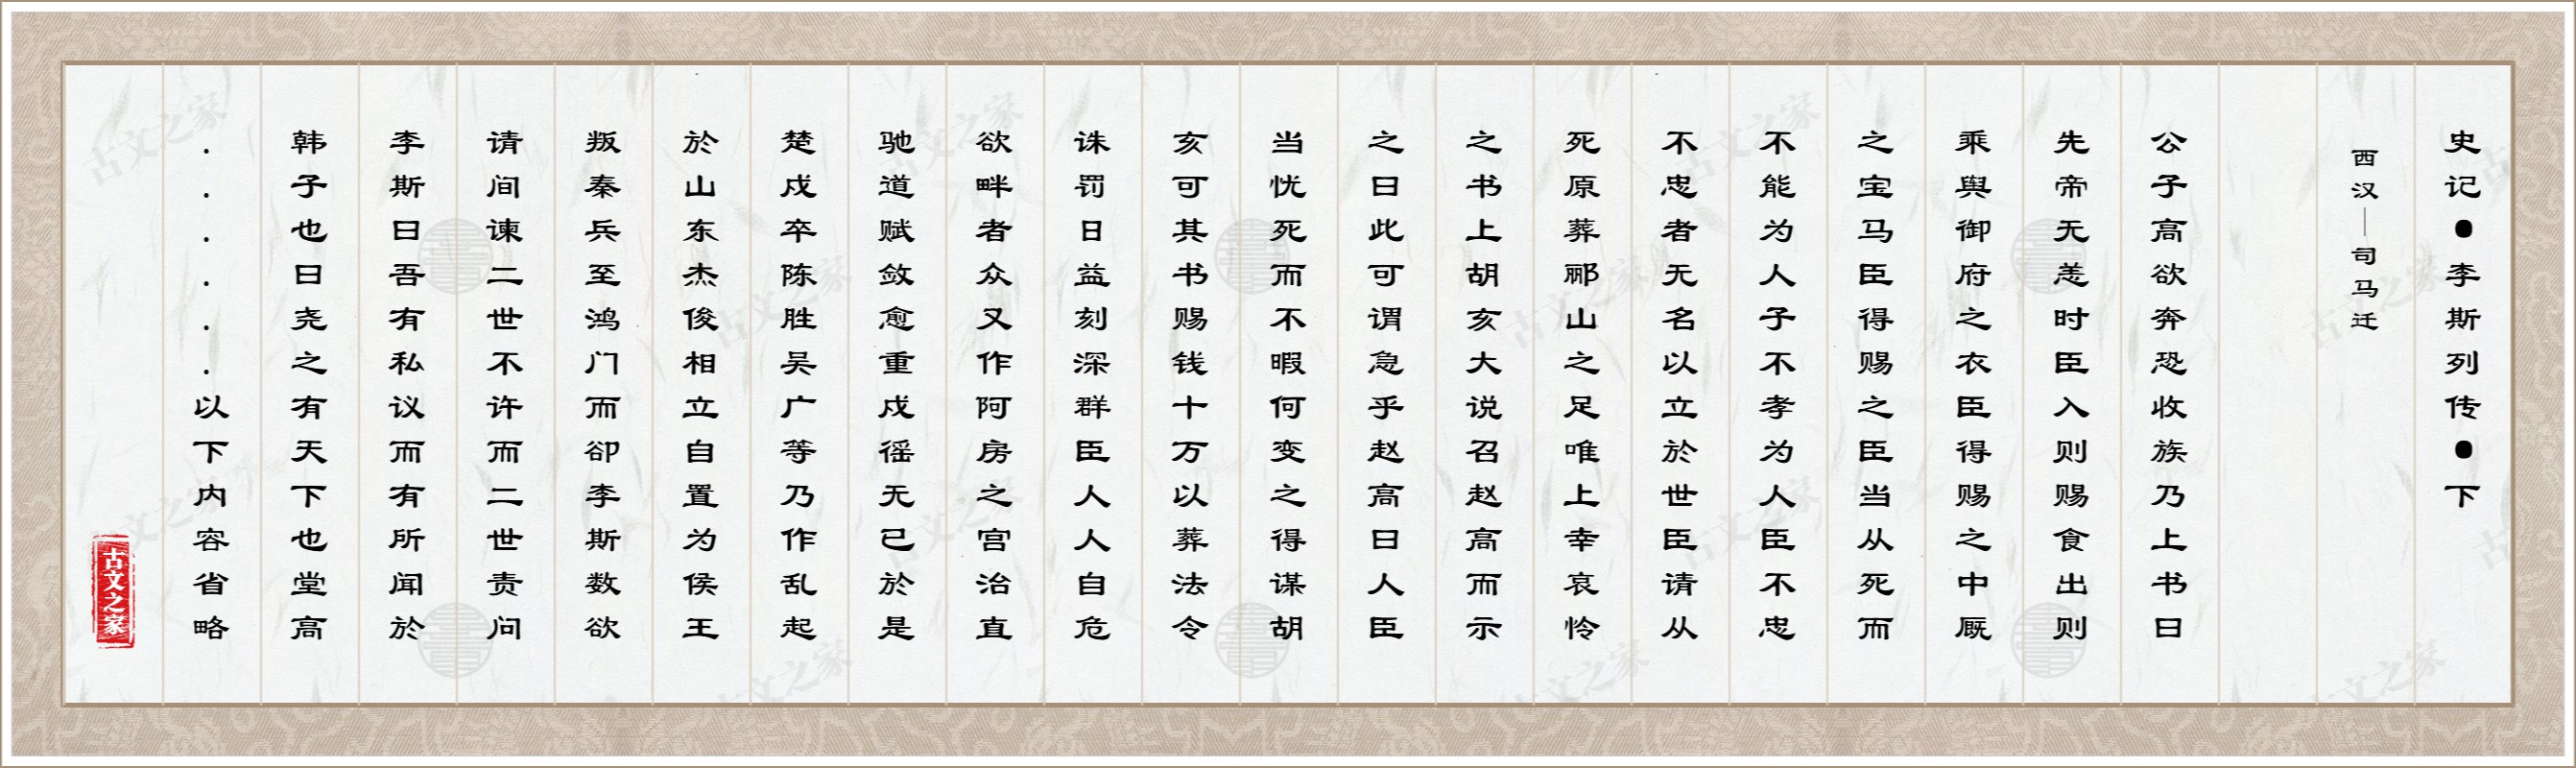 史记●李斯列传●下
西汉—司马迁
公子高欲奔恐收族乃上书曰
先帝无恙时臣入则赐食出则
乘舆御府之衣臣得赐之中厩
之宝马臣得赐之臣当从死而
不能为人子不孝为人臣不忠
不忠者无名以立於世臣请从
死原葬郦山之足唯上幸哀怜
之书上胡亥大说召赵高而示
之曰此可谓急乎赵高曰人臣
当忧死而不暇何变之得谋胡
亥可其书赐钱十万以葬法令
诛罚日益刻深群臣人人自危
欲畔者众又作阿房之宫治直
驰道赋敛愈重戍徭无已於是
楚戍卒陈胜吴广等乃作乱起
於山东杰俊相立自置为侯王
叛秦兵至鸿门而卻李斯数欲
请间谏二世不许而二世责问
李斯曰吾有私议而有所闻於
韩子也曰尧之有天下也堂高
......以下内容省略
古文之家